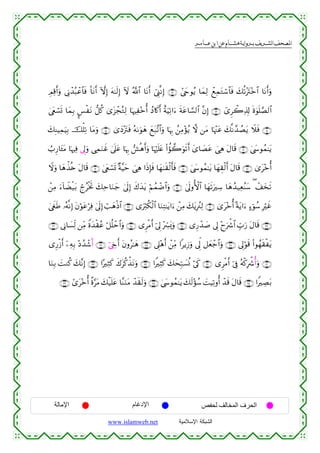 المصحف الشريف برواية هشام عن ابن عامر
وَأَنَا ٱخْتَرْتُكَ فَٱسْتَمِعْ لِمَا يُوحَىٰٓ إِنَّنِىٓ أَنَا ٱللَّهُ لَآ إِلَٰهَ إِلَّآ أَنَا فَٱعْبُدْنِى وَأَقِمِ
ٱلصَّلَوٰةَ لِذِكْرِىٓ إِنَّ ٱلسَّاعَةَ ءَاتِيَةٌ أَكَادُ أُخْفِيهَا لِتُجْزَىٰ كُلُّ نَفْسٍۭ بِمَا تَسْعَىٰ
فَلَا يَصُدَّنَّكَ عَنْهَا مَن لَّا يُؤْمِنُ بِهَا وَٱتَّبَعَ هَوَىٰهُ فَتَرْدَىٰ وَمَا تِلْكَ بِيَمِينِكَ
يَٰمُوسَىٰ قَالَ هِىَ عَصَاىَ أَتَوَكَّؤُا۟ عَلَيْهَا وَأَهُشُّ بِهَا عَلَىٰ غَنَمِى وَلِى فِيهَا مَـَٔارِبُ
أُخْرَىٰ قَالَ أَلْقِهَا يَٰمُوسَىٰ فَأَلْقَىٰهَا فَإِذَا هِىَ حَيَّةٌ تَسْعَىٰ قَالَ خُذْهَا وَلَا
تَخَفْ سَنُعِيدُهَا سِيرَتَهَا ٱلْأُولَىٰ وَٱضْمُمْ يَدَكَ إِلَىٰ جَنَاحِكَ تَخْرُجْ بَيْضَآءَ مِنْ
غَيْرِ سُوٓءٍ ءَايَةً أُخْرَىٰ لِنُرِيَكَ مِنْ ءَايَٰتِنَا ٱلْكُبْرَى ٱذْهَبْ إِلَىٰ فِرْعَوْنَ إِنَّهُۥ طَغَىٰ
قَالَ رَبِّ ٱشْرَحْ لِى صَدْرِى وَيَسِّرْ لِىٓ أَمْرِى وَٱحْلُلْ عُقْدَةً مِّن لِّسَانِى
يَفْقَهُوا۟ قَوْلِى وَٱجْعَل لِّى وَزِيرًا مِّنْ أَهْلِى هَٰرُونَ أَخِى أَشْدُدْ بِهِۦٓ أَزْرِى
وَأُشْرِكْهُ فِىٓ أَمْرِى كَىْ نُسَبِّحَكَ كَثِيرًا وَنَذْكُرَكَ كَثِيرًا إِنَّكَ كُنتَ بِنَا
بَصِيرًا قَالَ قَدْ أُوتِيتَ سُؤْلَكَ يَٰمُوسَىٰ وَلَقَدْ مَنَنَّا عَلَيْكَ مَرَّةً أُخْرَىٰٓ
الحرف المخالف لحفص الإدغام الإمالة
الشبكة الإسلامية www.islamweb.net